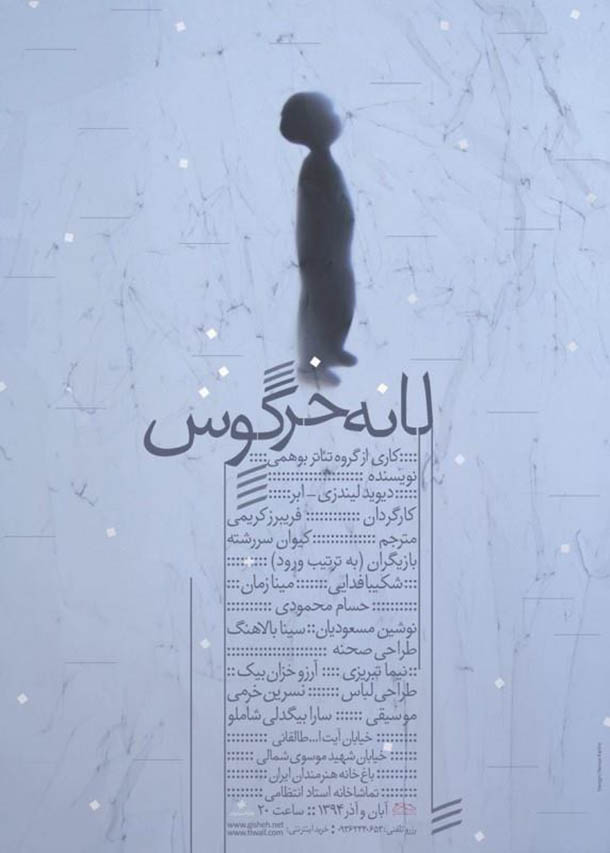 لانه خرگوش
کاری از گروه تئاتر بوهمی
نویسنده
دیوید لیندزی - ابر
کارگردان :::::::::: فریبرز کریمی
مترجم :::::::::::::: کیوان سررشته
بازیگران (به ترتیب ورود) ::::::
::: شکیبا فدایی ::::::: مینا زمان :::
:::::::::: حسام محمودی ::::::::::
نوشین مسعودیان :: سینا بالاهنگ
طراحی صحنه ::::::::::::::::::::::
:: نیما تبریزی :::: آرزو خزان بیک ::
طراحی لباس ::::::: نسرین خرمی
موسیقی :::::: سارا بیگدلی شاملو
خیابان آیت ا... طالقانی
خیابان شهید موسوی شمالی
باغ خانه هنرمندان ایران
تماشاخانه استاد انتظامی
آبان و آذر ۱۳۹۴ :: ساعت ۲۰
خرید اینترنتی:
www.gisheh.net
www.tiwall.com